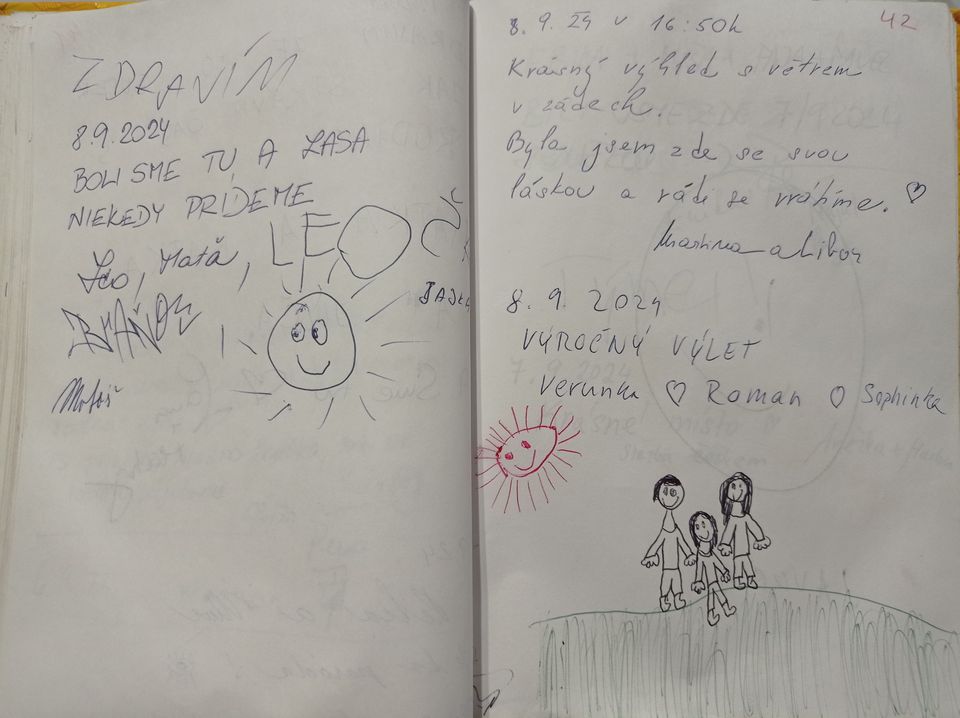 ZDRAVÍM
8.9.2024
BOLI SME TU A ZASA
NIEKEDY PRÍDEME
Leo, Mată, LEO
Matúš
42
8. 9. 24 v 16:50h
Krásný výhled s větrem
v zádech.
Byla jsem zde se svou
láskou a rádi se vrátíme. ♡
Martina a Libor
8. 9. 2024
VÝROČNÝ VÝLET
Verunka ♡ Roman ♡ Sophinka